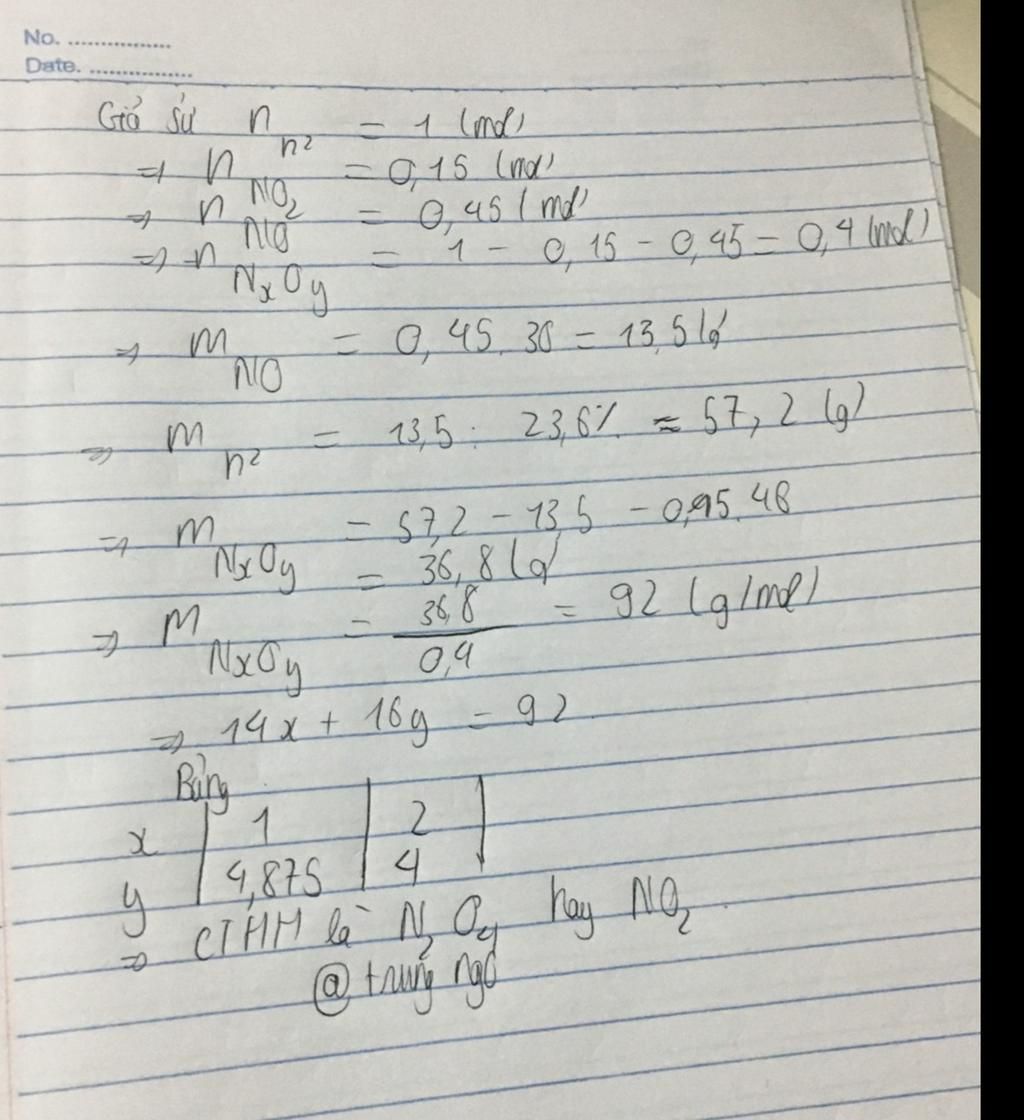 No. ................
Date. ................
Giả sử n n² = 1 (mol)
=> n NO₂ = 0,15 (mol)
=> n NO = 0,45 (mol)
=> n NxOy = 1 - 0,15 - 0,45 = 0,4 (mol)
=> m NO = 0,45.30 = 13,5 (g)
=> m n² = 13,5 : 23,6% ≈ 57,2 (g)
=> m NxOy = 57,2 - 13,5 - 0,15.46
= 36,8 (g)
=> M NxOy = 36,8/0,4 = 92 (g/mol)
=> 14x + 16y = 92
Bảng
x | 1 | 2 |
y | 4,875 | 4 |
=> CTHH là N₂O₄ hay NO₂.
@ trung ngo